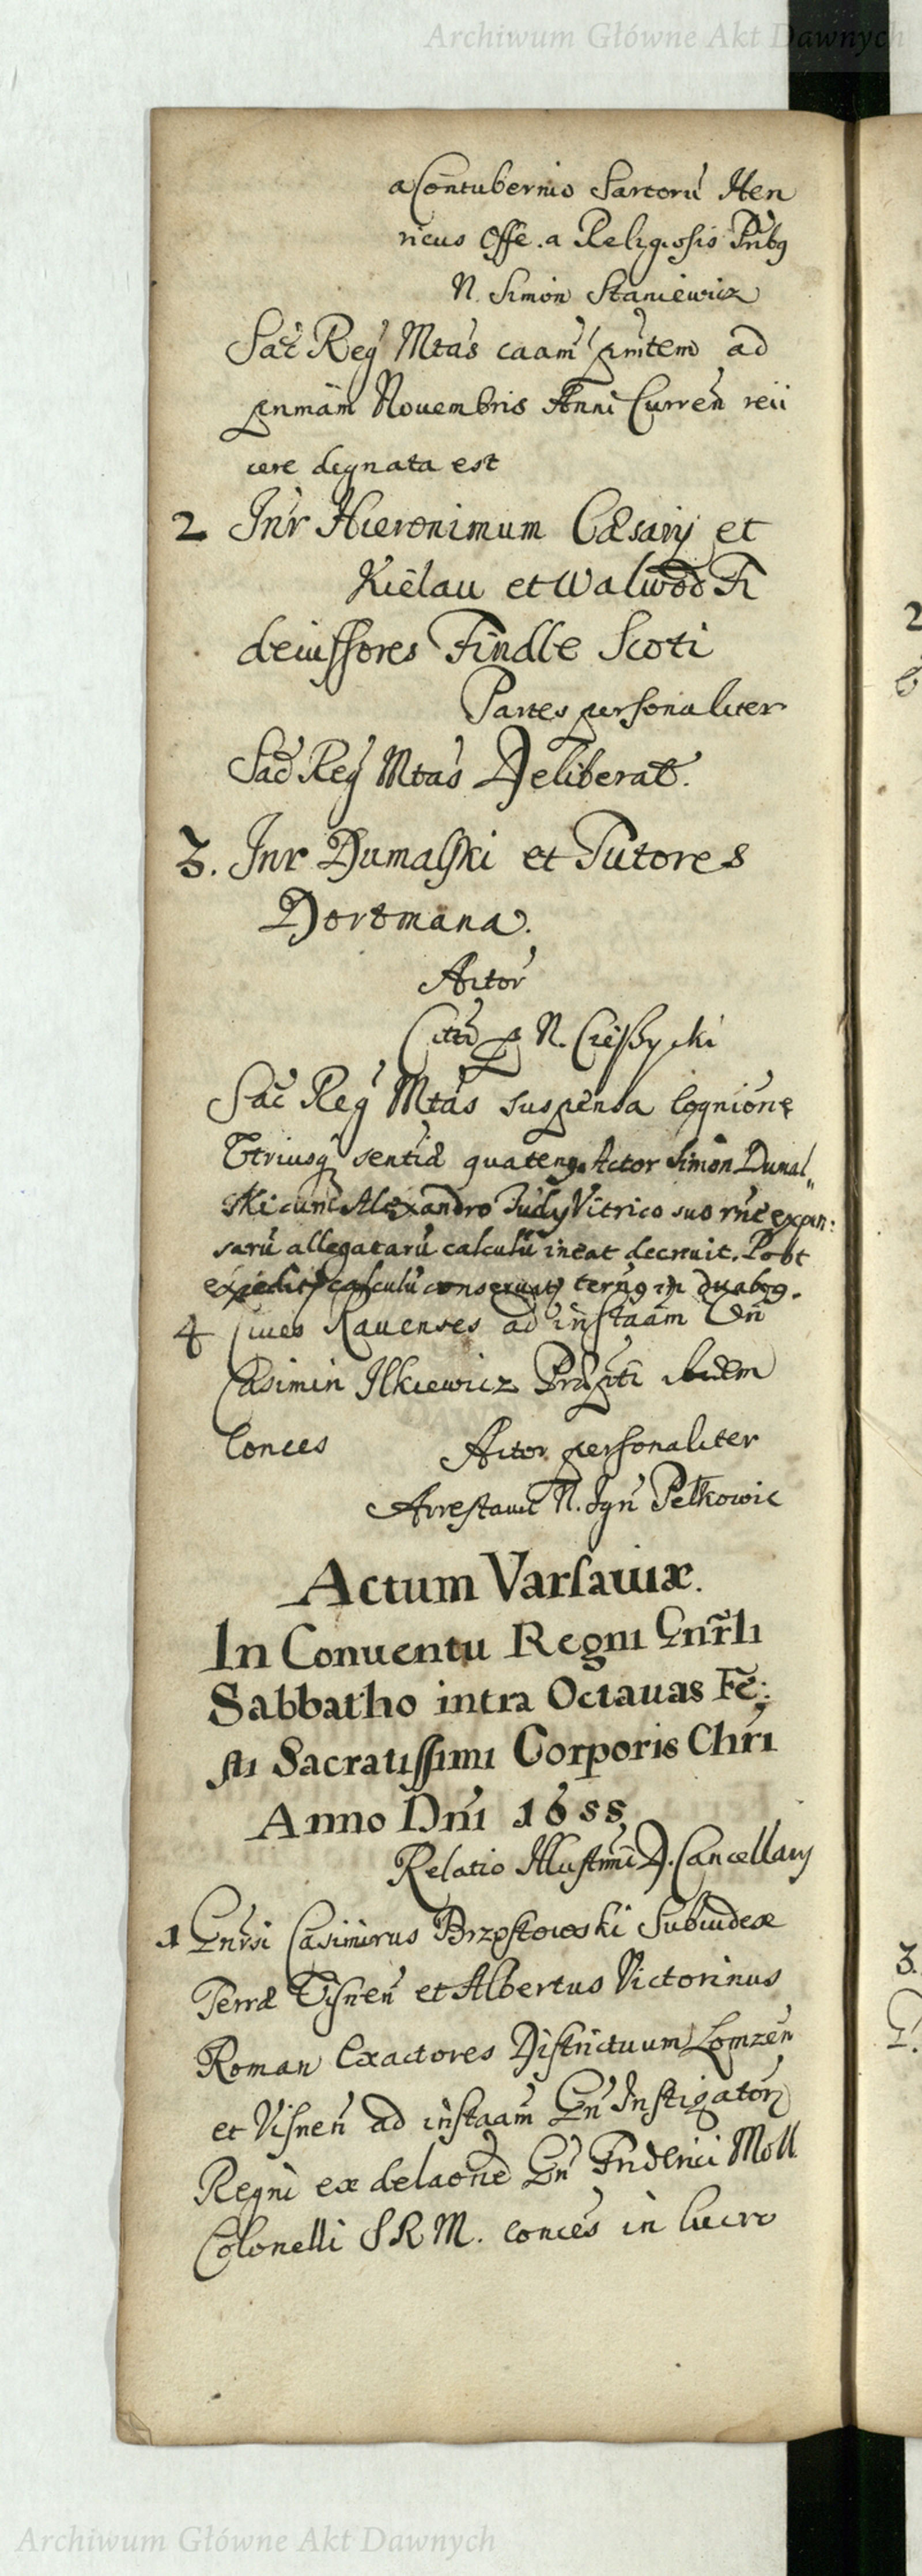 Archiwum Główne Akt Dawnych
a Contubernio Sartorũ Hen
ricus Offe. a Religiosis Prıbg
N. Simon Staniewicz
Sac̃ Reg Mtas caam pntem ad
primam Nouembris Anni Curren reii
cere dignata est
2 Inr Hieronimum Cæsarij et
Kiełau et Walwod Fi
deiussores Findle Scoti
Partes personaliter
Sac Reg Mtas Deliberat.
3. Inr Dumalski et Tutores
Dortmana.
Actor
Citti p N. Cieszycki
Sac Reg Mtas suspensa cognione
Utriusq sentia quateng Actor Simon Dumal„
ski cum Alexandro Judy Vitrico suo rne expen:
sarũ allegatarũ calculũ ineat decreuit. Post
calculũ terng in duabg.
4 Ciues Rauenses ad instaam Gñ
Casimiri Ilkiewicz Præpti ibidem
Conces Actor personaliter
Arrestauit N. Ign Pełkowic
Actum Varsauiæ.
In Conuentu Regni Gnr̃li
Sabbatho intra Octauas Fe:
sti Sacratissimi Corporis Chri
Anno Dni 1655
Relatio Illustmi D. Cancellarij
1 Gnrsi Casimirus Brzostowski Subiudex
Terræ Visnen et Albertus Victorinus
Roman Exactores Districtuum Lomzen
et Visnen ad instaam Gn Instigatorꝫ
Regni ex delaone Gn Friderici Moll
Colonelli S R M. conces in lucro
2
3.
Archiwum Główne Akt Dawnych